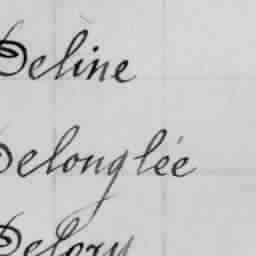 Deline
Delonglée
Delory